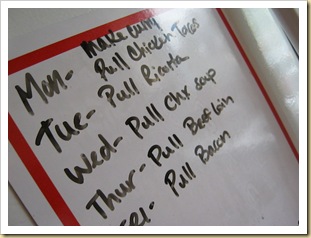 Make
Mon- Pull Chicken Tacos
Tue- Pull Ricotta
Wed- Pull Chx Soup
Thur- Pull Beef Loin
Pull Bacon